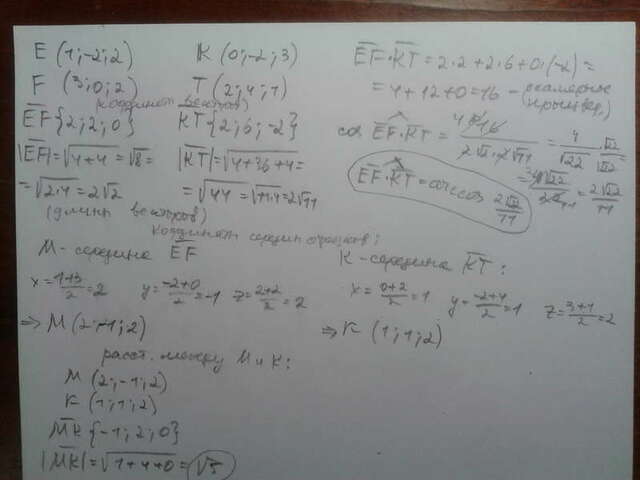 E (1;-2;2)   K (0;-2;3)
F (3;0;2)   T (2;4;1)
(координат векторов)
EF{2;2;0}   KT{2;6;-2}
|EF|=√4+4=√8=   |KT|=√4+36+4=
=√2·4=2√2   =√44=√11·4=2√11
(длины векторов)
EF·KT=2·2+2·6+0·(-2)=
=4+12+0=16-(скалярное
cos EF·KT= =4/√22·√22/√22
EF·KT=arccos 2√22/11
=2√22/11
Координат середин отрезков:
M-середина EF   K-середина KT:
x=1+3/2=2   y=-2+0/2=-1   z=2+2/2=2   x=0+2/2=1   y=-2+4/2=1   z=3+1/2=2
=>M(2;-1;2)   =>K (1;1;2)
расст. между M и K:
M (2;-1;2)
K (1;1;2)
MK{-1;2;0}
|MK|=√1+4+0=√5